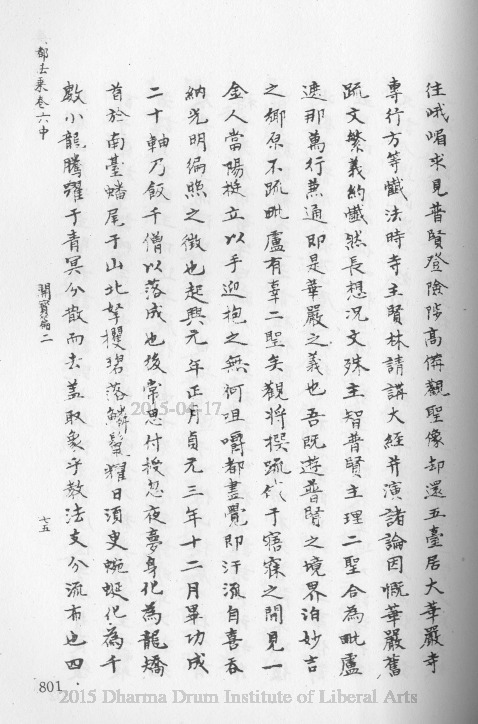 往峨嵋求見普賢登險陟高備觀聖像却還五臺居大華嚴寺
專行方等懺法時寺主賢林請講大經并演諸論因慨華嚴舊
疏文繁義約惙然長想况文殊主智普賢主理二聖合為毗盧
遮那萬行兼通即是華嚴之義也吾既遊普賢之境界泊妙吉
之鄉原不疏毗盧有辜二聖矣觀將撰疏俄于寤寐之間見一
金人當陽挺立以手迎抱之無何咀嚼都盡覺即汗流自喜吞
納光明徧照之徵也起興元年正月貞元三年十二月畢功成
二十軸乃飯千僧以落成也後常思付授忽夜夢身化為龍矯
首於南臺蟠尾于山北拏攫碧落鱗鬣耀日須臾蜿蜒化為千
數小龍騰躍于青冥分散而去蓋取象乎教法支分流布也四
都去乘卷六中
開寶篇二
七五
801
2015-04-17
2015 Dharma Drum Institute of Liberal Arts